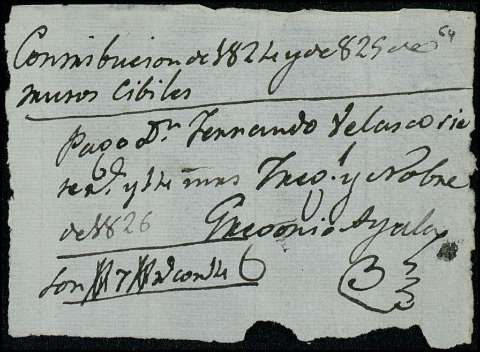 64
Contribucion de 1824 y de 825 de
muros Cibiles
Pago Dn Fernando Velasco sie
te rs. y 14 mrs y Nobre
de 1826 Gregorio Ayala
Son 7 rs con 14